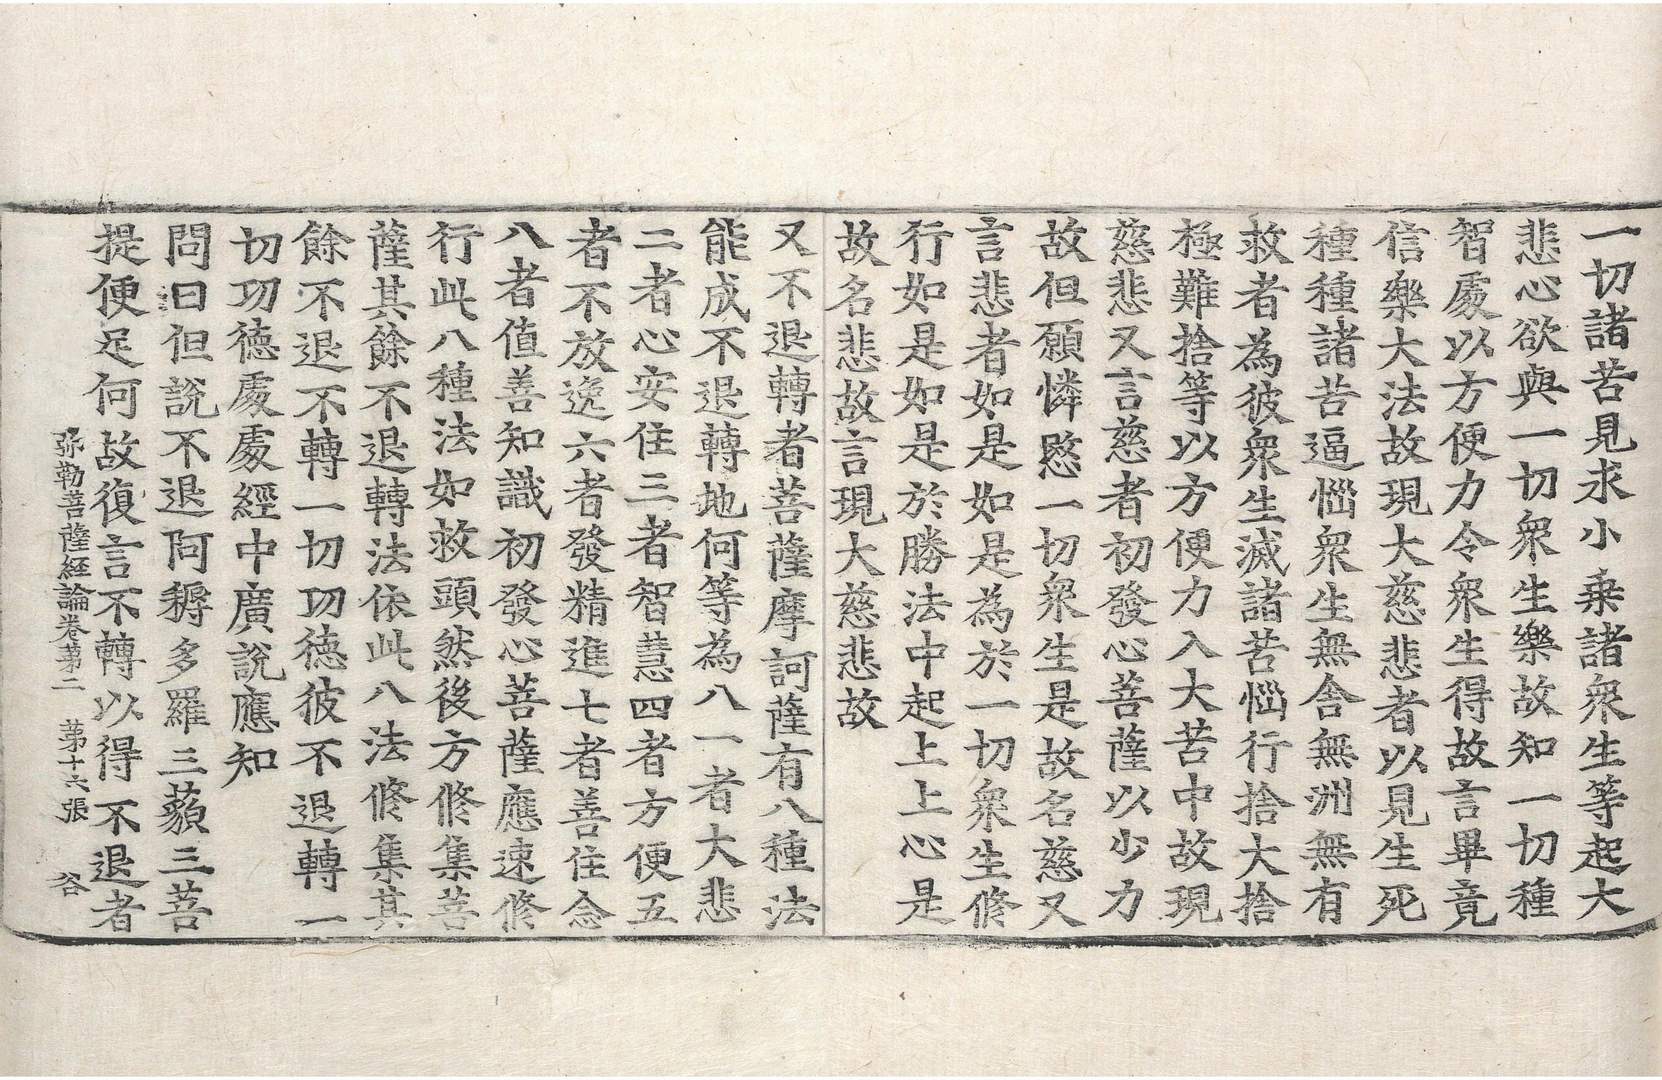 一切諸苦見求小乗諸衆生等起大
悲心欲與一切衆生樂故知一切種
智處以方便力令衆生得故言畢竟
信樂大法故現大慈悲者以見生死
種種諸苦逼惱衆生無舍無洲無有
救者為彼衆生滅諸苦惱行捨大捨
極難捨等以方便力入大苦中故現
慈悲又言慈者初發心菩薩以少力
故但願憐愍一切衆生是故名慈又
言悲者如是如是為於一切衆生修
行如是如是於勝法中起上上心是
故名悲故言現大慈悲故
又不退轉者菩薩摩訶薩有八種法
能成不退轉地何等為八一者大悲
二者心安住三者智慧四者方便五
者不放逸六者發精進七者善住念
八者值善知識初發心菩薩應速修
行此八種法如救頭然後方修集菩
薩其餘不退轉法依此八法修集其
餘不退不轉一切功德彼不退轉一
切功德處處經中廣說應知
問曰但說不退阿耨多羅三藐三菩
提便足何故復言不轉以得不退者
弥勒菩薩経論卷苐二　苐十六張　谷